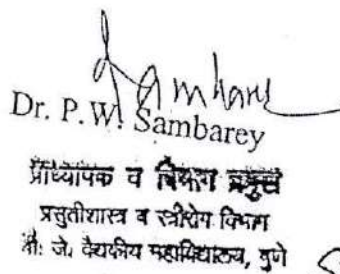 Dr. P.W. Sambarey
प्राध्यापक व विभाग प्रमुख
प्रसुतीशास्त्र व स्त्रीरोग विभाग
बी. जे. वैद्यकीय महाविद्यालय, पुणे